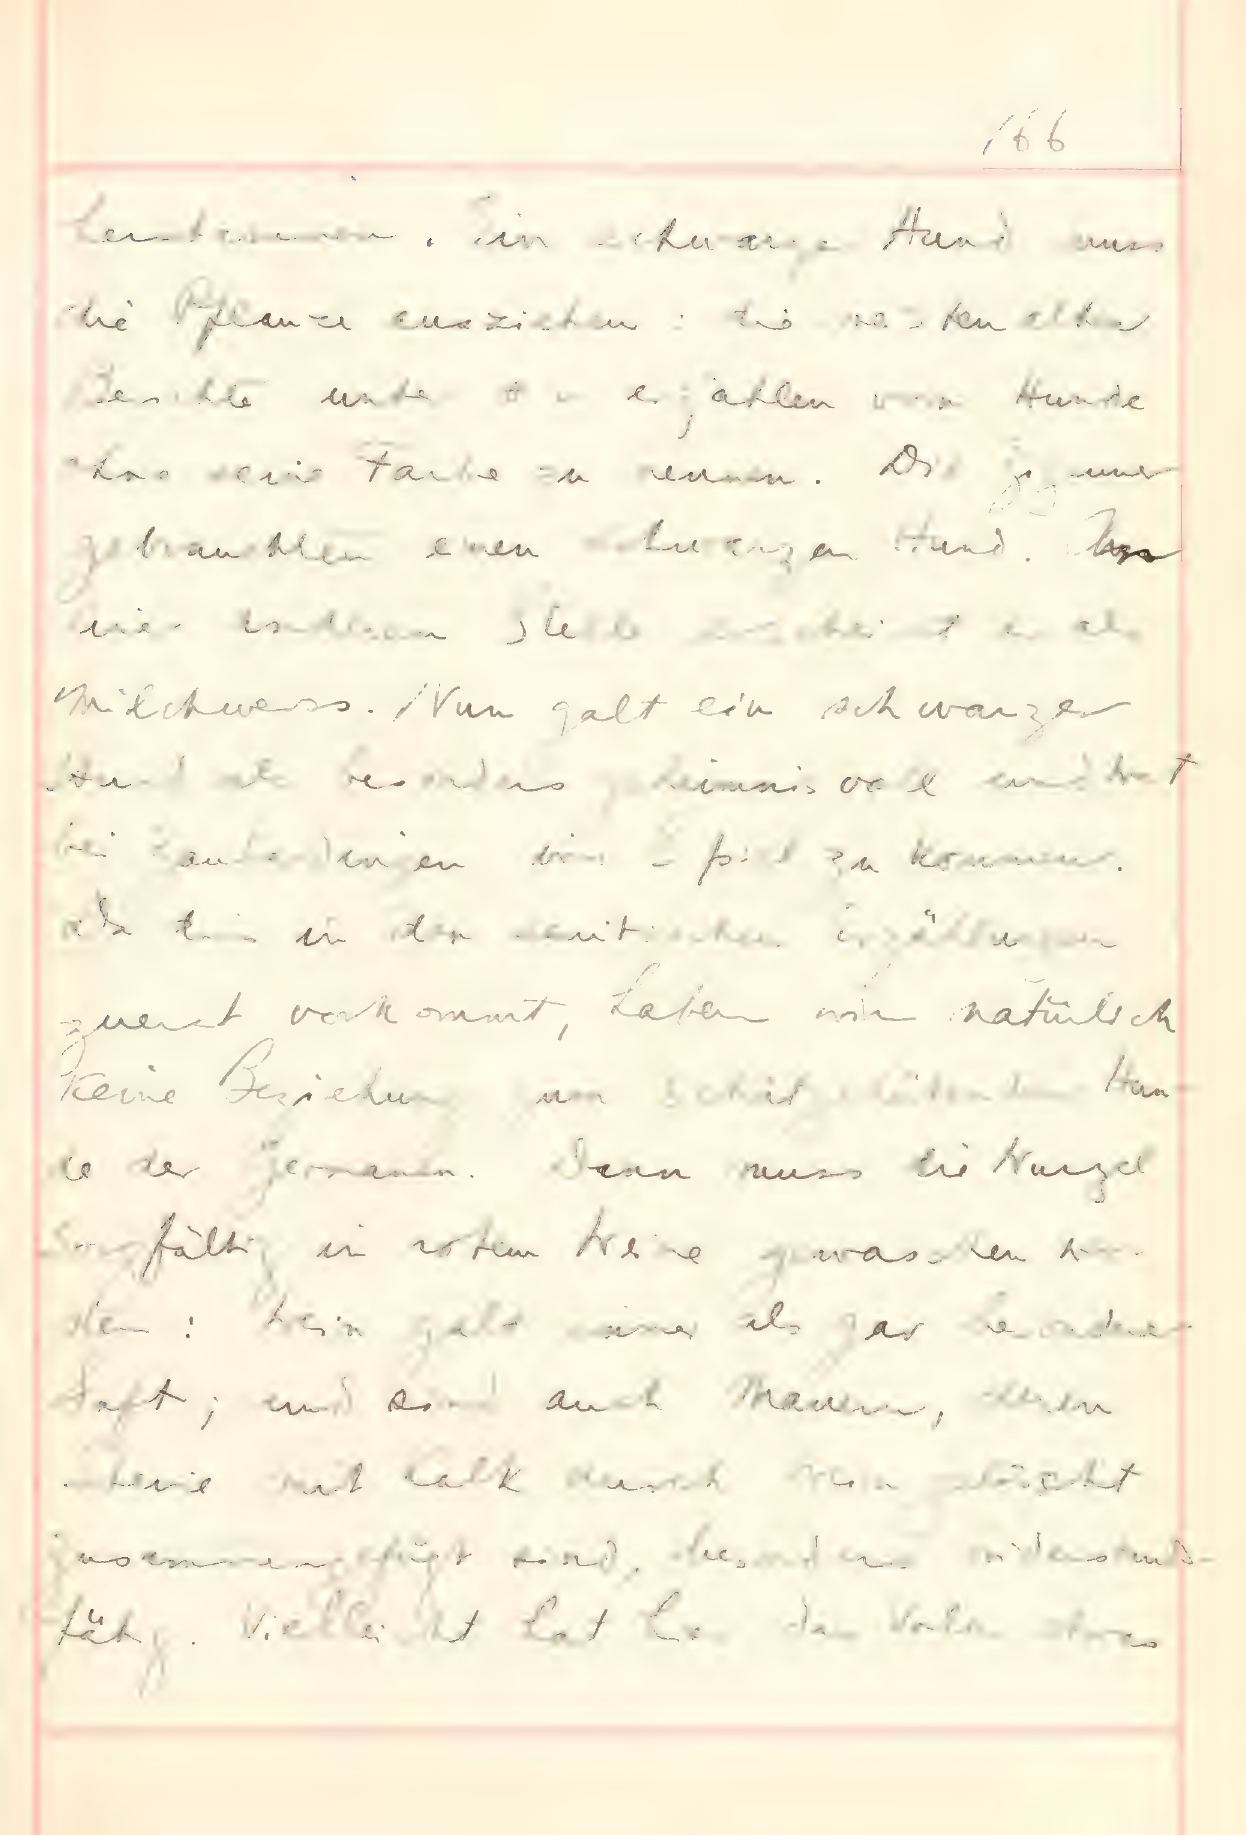 166
. Ein schwarzer Hund muss
die Pflanze ausziehen : die meisten alten
Berichte unter erzählen vom Hunde
ohne seine Farbe zu nennen. Die Zigeuner
gebrauchten einen schwarzen Hund. An
einer anderen Stelle erscheint er als
Milchweiss. Nun galt ein schwarzer
Hund als besonders geheimnisvoll und hat
bei Zauberdingen ins Spiel zu kommen.
Da dies in den semitischen Erzählungen
zuerst vorkommt, haben wir natürlich
keine Beziehung zum schatzhütenden Hun-
de der Germanen. Dann muss die Wurzel
sorgfältig in rotem Weine gewaschen wer-
den : Wein galt immer als gar besonderer
Saft ; und sind auch Mauern, deren
Steine mit Kalk durch Wein gelöscht
zusammengefügt sind, besonders widerstands-
fähig. Vielleicht hat hier das Volk etwas